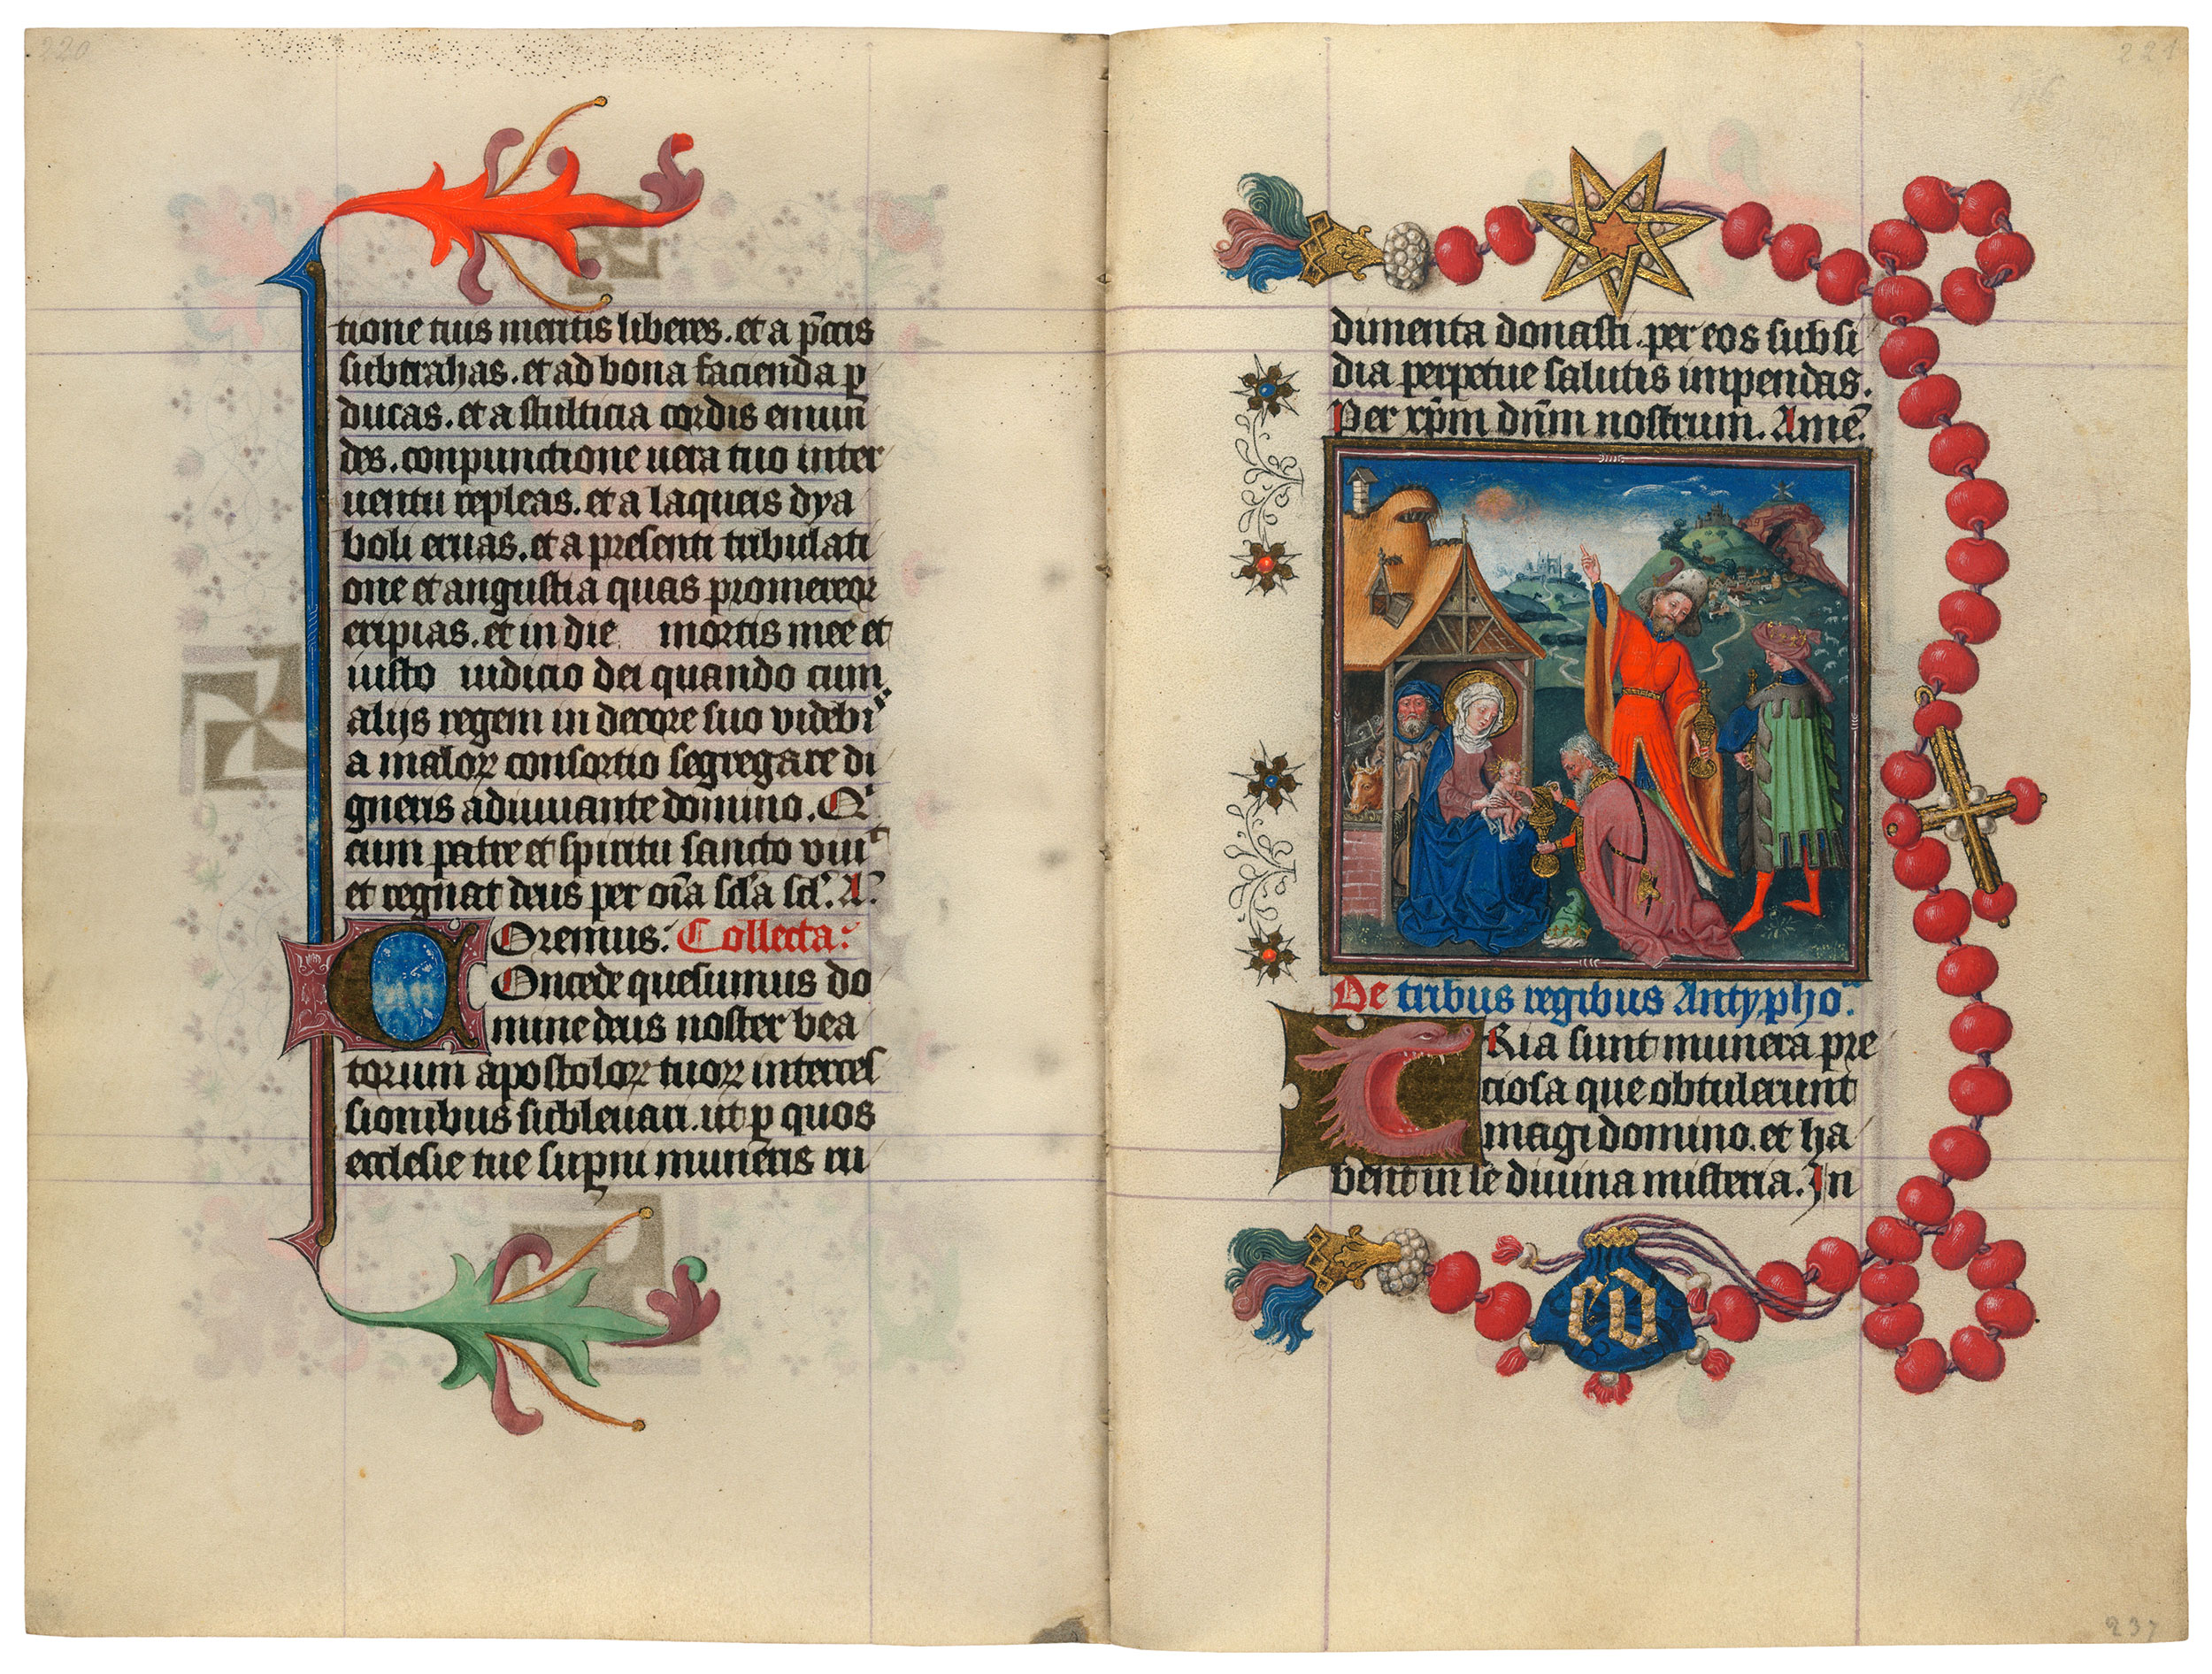 220
tione tuis meritis liberes. et a p̄ccis
subtrahas. et ad bona facienda ꝑ
ducas. et a stulticia cordis emun
des. conpunctione uera tuo inter
uentu repleas. et a laqueis dya
boli eruas. et a presenti tribulati
one et angustia quas promereor
eripias. et in die mortis mee et
iusto iudicio dei quando cum
alijs regem in decore suo videbi
a maloꝝ consortio segregare di
gneris adiuuante domino. Q
cum patre et spiritu sancto viui
et regnat deus per oīa scl'a scl'. A
Oremus. Collecta:
COncede quesumus do
mine deus noster bea
torum apostoloꝝ tuoꝝ interces
sionibus subleuari. ut ꝑ quos
ecclesie tue suꝑni muneris ru
221
dimenta donasti. per eos subsi
dia perpetue salutis impendas.
Per xp̄m dn̄m nostrum. Amē.
De tribus regibus Antypho
TRia sunt munera pre
ciosa que obtulerunt
magi domino. et ha
bent in se diuina misteria. In
cd
237